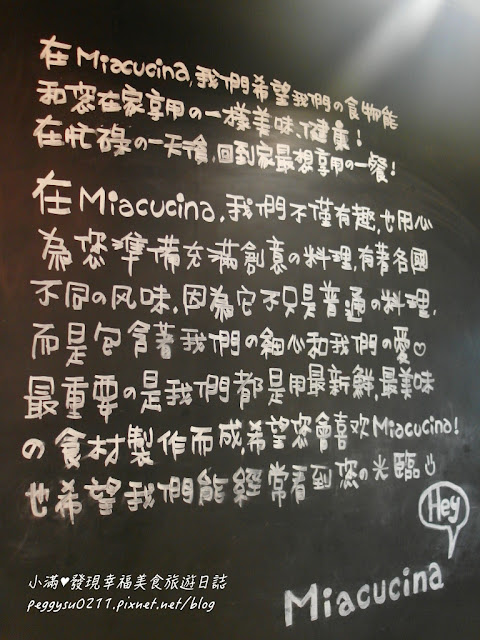 在Miacucina,我們希望我們の食物能
和您在家享用の一樣美味、健康!
在忙碌の一天後,回到家最想享用の一餐!
在Miacucina,我們不僅有趣,也用心
為您準備充滿創意の料理,有著各國
不同の风味,因為它不只是普通の料理,
而是包含著我們の細心和我們の愛♡
最重要の是我們都是用最新鮮,最美味
の食材製作而成,希望您會喜欢Miacucina!
也希望我們能經常看到您の光臨
Hey
Miacucina
小滿♥發現幸福美食旅遊日誌
peggysu0211.pixnet.net/blog